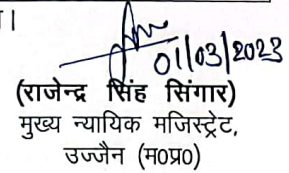 ।
01/03/2023
(राजेन्द्र सिंह सिंगार)
मुख्य न्यायिक मजिस्ट्रेट,
उज्जैन (म०प्र०)